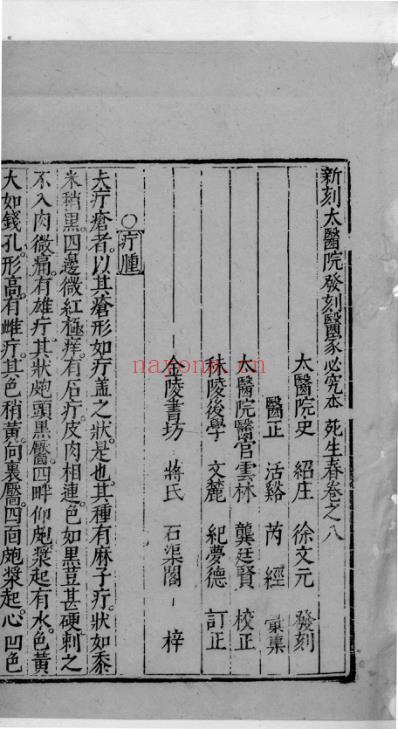 新刻太醫院發刻醫家必究本 死生春卷之八
太醫院史 紹庄 徐文元 發刻
醫正 活谿 芮經 彙集
太醫院醫官雲林 龔廷賢 校正
秣陵後學 文麓 紀夢德 訂正
金陵書坊 蔣氏 石渠閣 梓
○疔腫
夫疔瘡者。以其瘡形如疔盖之狀。是也。其種有麻子疔。狀如黍
米稍黑。四邊微紅極痒。有石疔。皮肉相連。色如黒荳。甚硬。刺之
不入肉微痛。有雄疔。其狀皰頭黒黶。四畔仰皰漿起有水。色黃
大如錢孔。形高。有雌疔。其色稍黃。向裏黶。四面皰漿起。心凹色
naxona.com